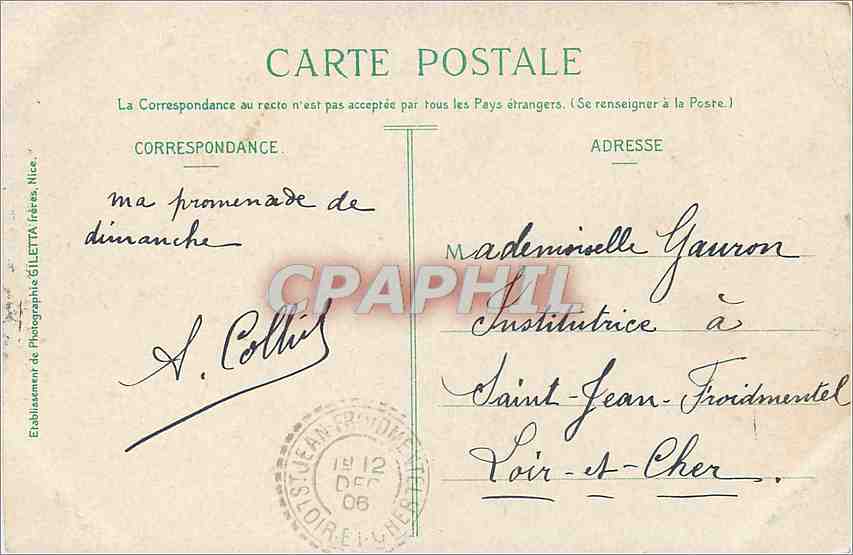 CARTE POSTALE
La Correspondance au recto n'est pas acceptée par tous les Pays étrangers. (Se renseigner à la Poste.)
CORRESPONDANCE.
ma promenade de
dimanche
A.
ADRESSE
Mademoiselle Gauron
Institutrice à
Saint-Jean-Froidmentel
Loir-et-Cher.
CPAPHIL
Etablissement de Photographie GILETTA frères, Nice.
ST JEAN-FROIDMENTEL
12
DEC
06
LOIR-ET-CHER